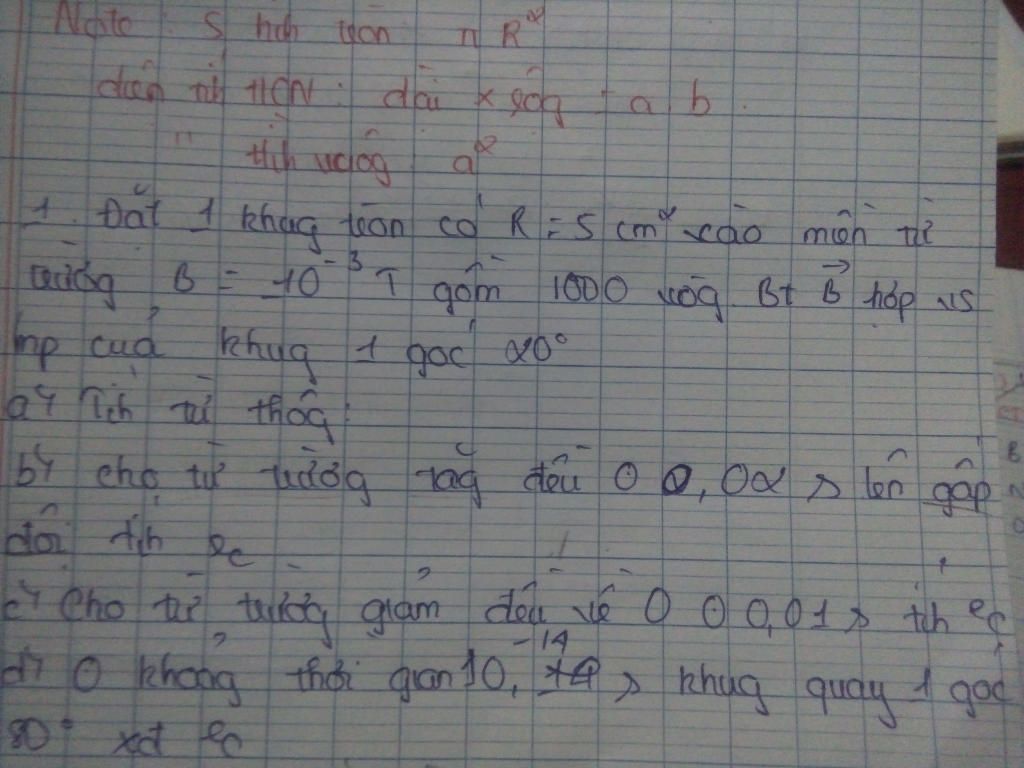 Ngoto: S hình tròn π R²
diện tih HCN: dài x rộg = a, b.
" hìh vuôg a²
1. Đặt 1 khug tròn có R = 5 cm² vào miền từ
trườg B = 10⁻³ T gồm 1000 vòg Bt B⃗ hợp vs
mp của khug 1 góc 20°
a, Tíh từ thôg:
b, cho từ trườg tăg đều 0 0,02s lên gấp
đôi tíh ec
c, Cho từ trườg giảm đều về 0 0 0,01s tíh ec
d, 0 khoảg thời gian 10,⁻¹⁴ s khug quay 1 góc
xđ ec